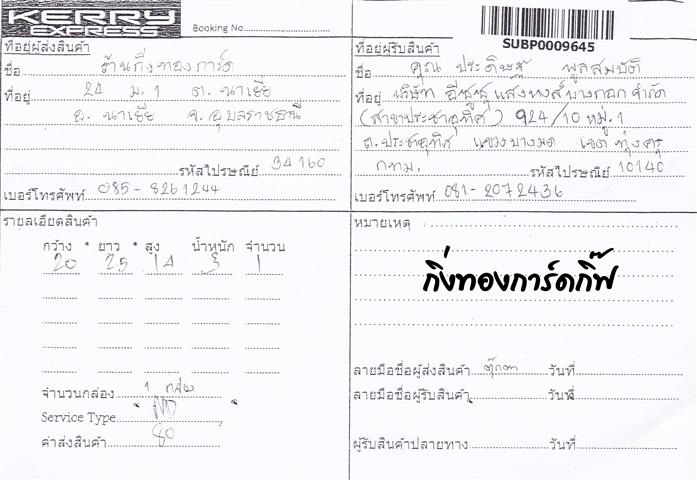 KERRY
EXPRESS
Booking No.
SUBP0009645
ที่อยู่ผู้ส่งสินค้า
ชื่อ ร้านกิ่งทองการ์ด
ที่อยู่ 24 ม.1 ต.นาเยีย
อ.นาเยีย จ.อุบลราชธานี
รหัสไปรษณีย์ 34160
เบอร์โทรศัพท์ 085-8261244
ที่อยู่ผู้รับสินค้า
ชื่อ คุณ ประดิษฐ์ พูลสมบัติ
ที่อยู่ บริษัท อีซูซุแสงหงส์บางกอก จำกัด
(สาขาประชาอุทิศ) 924/10 หมู่.1
ถ.ประชาอุทิศ แขวงบางมด เขต ทุ่งครุ
กทม. รหัสไปรษณีย์ 10140
เบอร์โทรศัพท์ 081-2072436
รายละเอียดสินค้า
กว้าง * ยาว * สูง น้ำหนัก จำนวน
20 25 14 3 1
จำนวนกล่อง 1 กล่อง
Service Type ND
ค่าส่งสินค้า 80
หมายเหตุ
กิ่งทองการ์ดกิ๊ฟ
ลายมือชื่อผู้ส่งสินค้า ตุ๊กตา วันที่
ลายมือชื่อผู้รับสินค้า วันที่
ผู้รับสินค้าปลายทาง วันที่